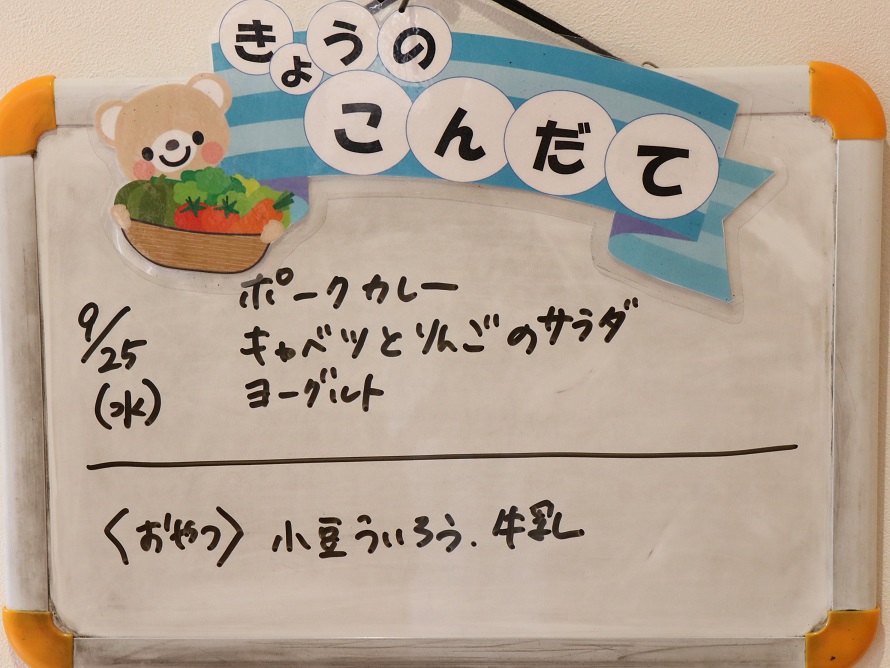 きょうの
こんだて
9/25
(水)
ポークカレー
キャベツとりんごのサラダ
ヨーグルト
〈おやつ〉 小豆ういろう、牛乳